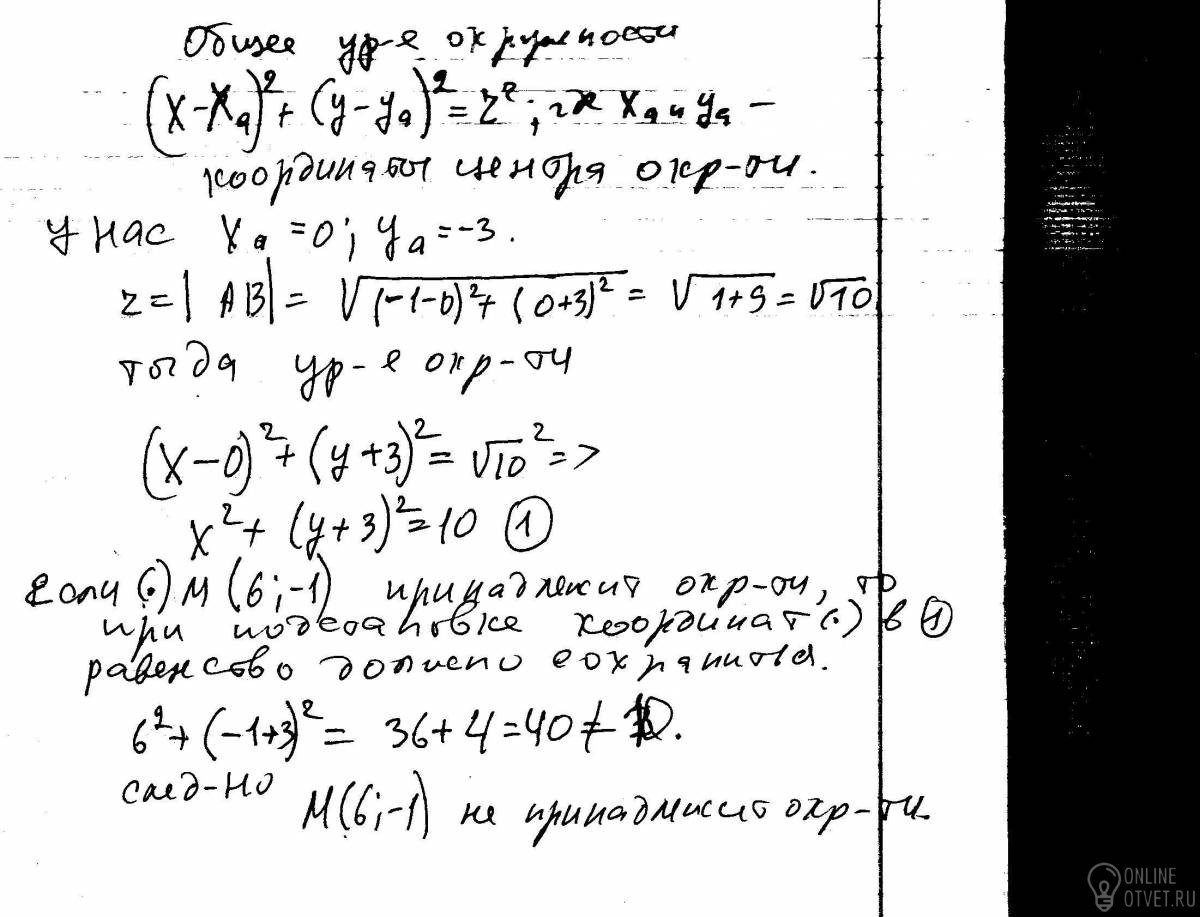 Общее ур-е окружности
(x-xₐ)²+(y-yₐ)²=r²; где xₐ и yₐ –
координаты центра окр-ти.
У нас xₐ=0; yₐ=-3.
r=|AB|=√((-1-0)²+(0+3)²)=√(1+9)=√10
тогда ур-е окр-ти
(x-0)²+(y+3)²=√10²=>
x²+(y+3)²=10 ①
Если (·) M(6;-1) принадлежит окр-ти, то
при подстановке координат (·) в ①
равенство должно сохраниться.
6²+(-1+3)²=36+4=40≠10.
след-но
M(6;-1) не принадлежит окр-ти.
ONLINE
OTVET.RU